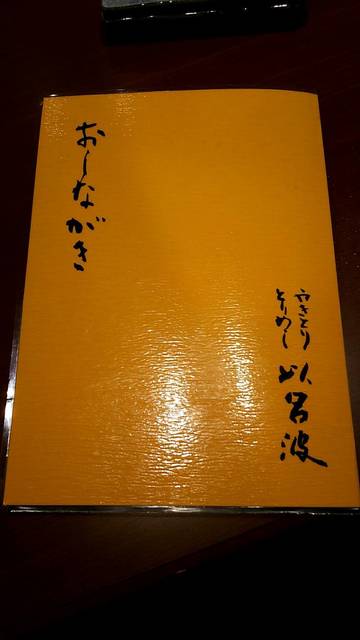 おしながき
やきとり
とりめし
以呂波